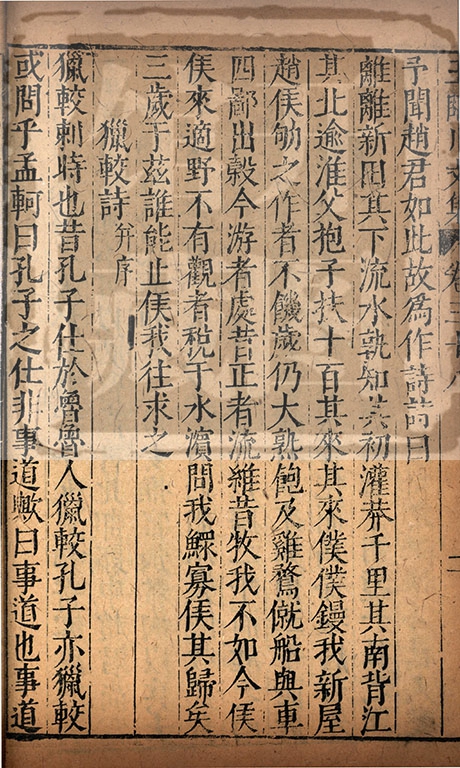 王臨川文集 卷三十八
予聞趙君如此故為作詩詩曰
離離新田其下流水孰知其初灌莽千里其南背江
其北逾淮父抱子扶十百其來其來僕僕鏝我新屋
趙侯劬之作者不饑歲仍大熟飽及雞鶩僦船與車
四鄙出穀今游者處昔正者流維昔牧我不如今侯
侯來適野不有觀者稅于水濱問我鰥寡侯其歸矣
三歲于茲誰能止侯我往求之
獵較詩 并序
獵較刺時也昔孔子仕於魯魯人獵較孔子亦獵較
或問乎孟軻曰孔子之仕非事道歟曰事道也事道